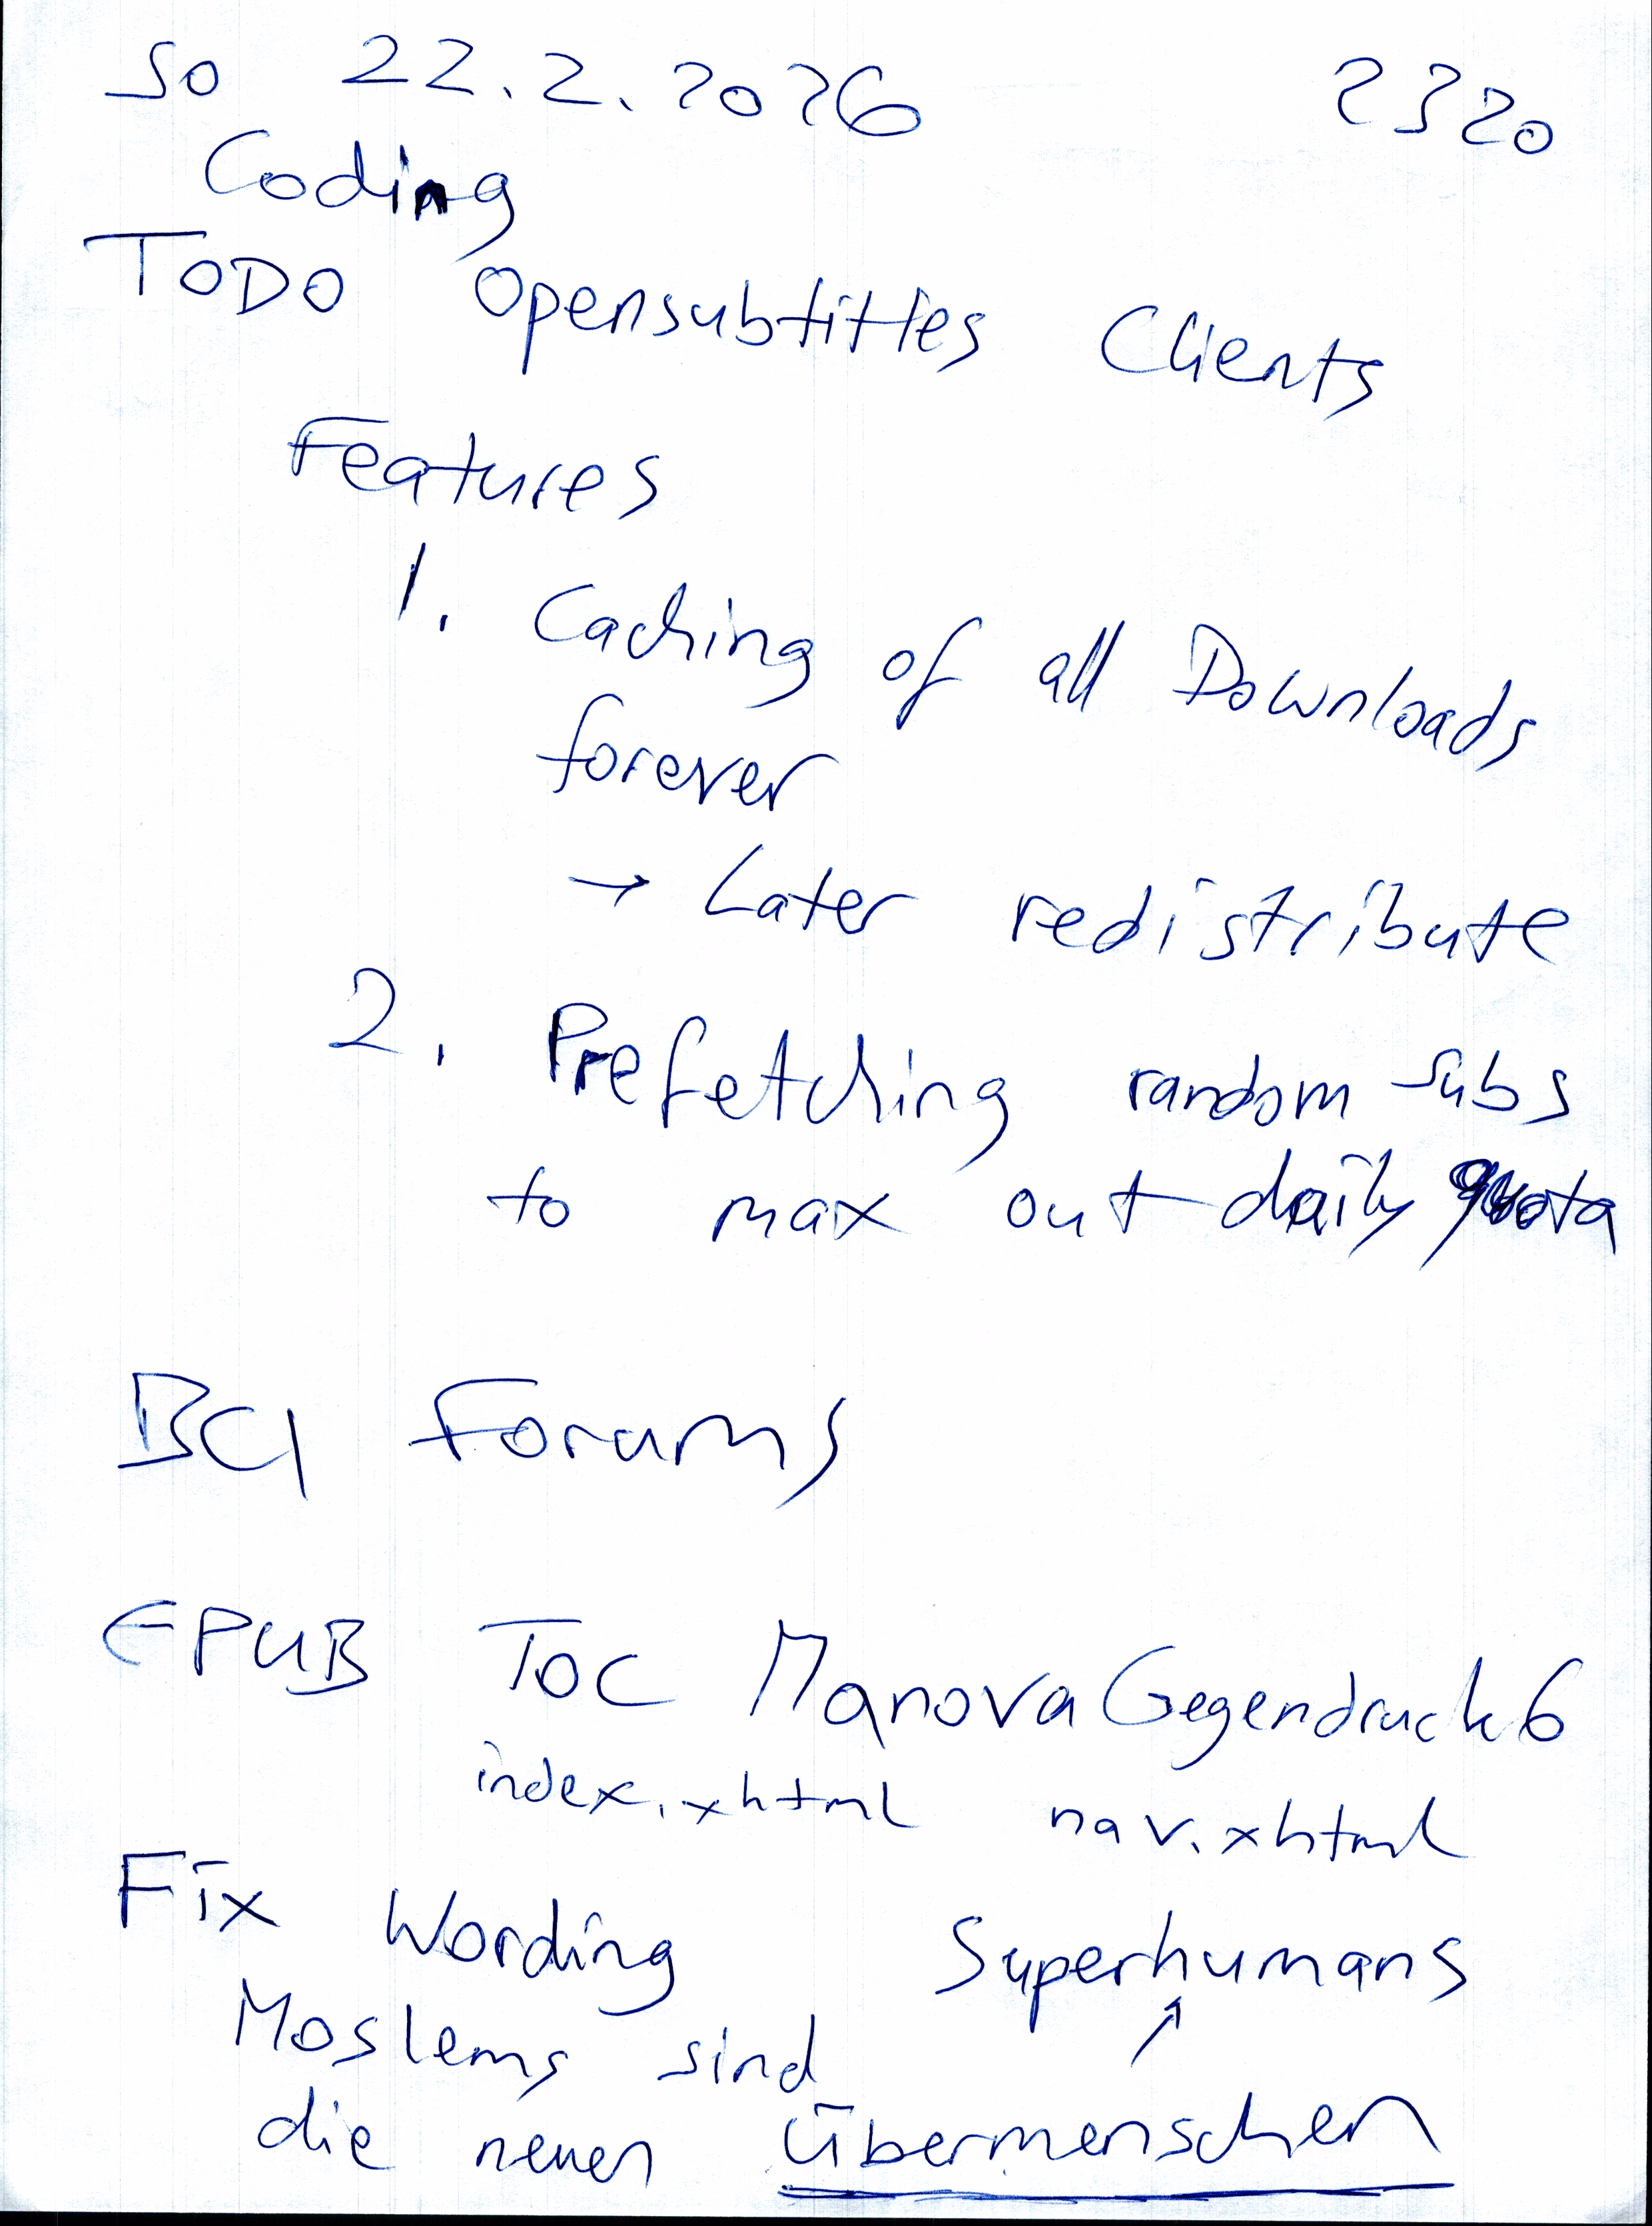 So 22.2.2026 2320
Coding
TODO Opensubtitles Clients
Features
1. Caching of all Downloads
forever
→ Later redistribute
2. Prefetching random subs
to max out daily quota
BCI Forums
EPUB TOC Manova Gegendruck 6
index.xhtml nav.xhtml
Fix Wording Superhumans
Moslems sind
die neuen Übermenschen